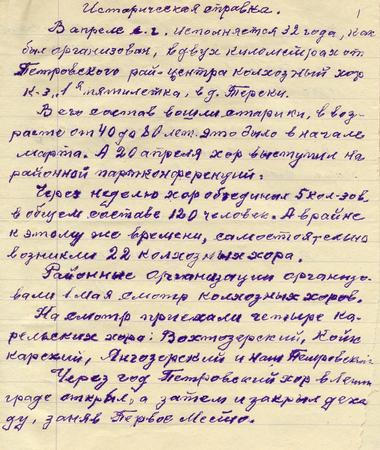 1
Историческая справка.
В апреле с.г. исполняется 32 года, как
был организован, в двух километрах от
Петровского рай-центра колхозный хор
к-з, 1я пятилетка, в д. Терски.
В его состав вошли старики, в воз-
расте от 40 до 80 лет. это было в начале
марта. А 20 апреля хор выступил на
районной партконференции:
Через неделю хор объединил 5 кол-зов,
в общем составе 120 человек. А в районе
к этому же времени, самостоятельно
возникли 22 колхозных хора.
Районные организации организо-
вали 1 мая смотр колхозных хоров.
На смотр приехали четыре ка-
рельских хора: Вохтозерский, Койк
карский, Янгозерский и наш Петровский:
Через год Петровский хор в Ленин
граде открыл, а затем и закрыл дека
ду, заняв Первое Место.